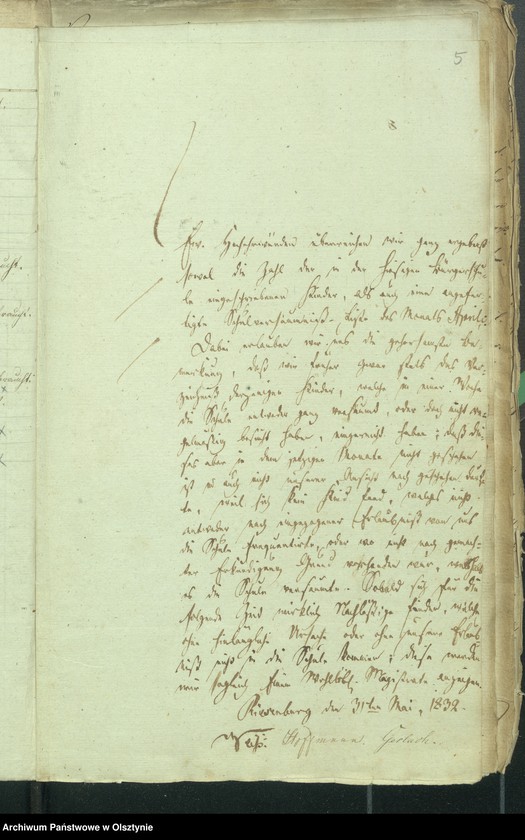 5
Ew. Hochehrwürden überreichen wir ganz ergebenst
sowol die Zahl der in der hiesigen Bürgerschu-
le eingeschriebenen Kinder, als auch eine angefer-
tigte Schulversäumniß-Liste des Monats Aprils.
Dabei erlauben wir uns die gehorsamste Be-
merkung, daß wir früher zwar stets das Ver-
zeichniß derjenigen Kinder, welche in einer Woche
die Schule entweder ganz versäumt, oder doch nicht re-
gelmäßig besucht haben, eingereicht haben; daß die-
ses aber in dem jetzigen Monate nicht geschehen
ist u auch nicht unserer Ansicht nach geschehen durf-
te, weil sich kein Kind fand, welches nicht
entweder nach eingegangener Erlaubniß von uns
die Schule frequentirte, oder wo nicht nach genau-
ter Erkundigung Grund vorhanden war, weshalb
es die Schule versäumte. Sobald sich für die
folgende Zeit wirklich Nachläßige finden, welche
ohne hinlängliche Ursache oder ohne unsere Erlaub
niß nicht in die Schule kommen; diese werden
wir sogleich Einem Wohllöbl. Magistrate anzeigen.
Riesenburg den 31ten Mai, 1832.
Hoffmann. Gerlach.
Archiwum Państwowe w Olsztynie